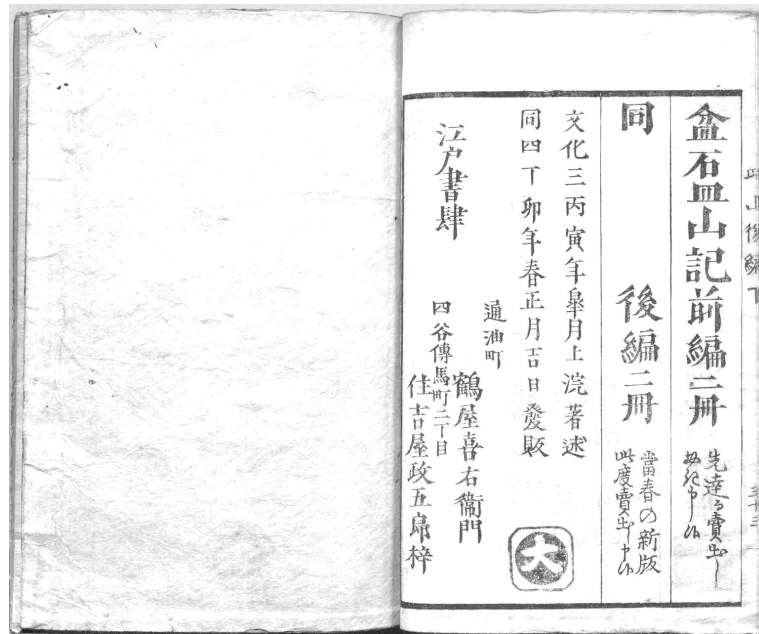 盆石皿山記前編二冊
先達而賣出し
同　後編二冊
當春の新版
此度賣出し申候
文化三丙寅年皐月上浣著述
同四丁卯年春正月吉日發販
江戸書肆
通油町
鶴屋喜右衞門
四谷傳馬町二丁目
住吉屋政五郎梓
大